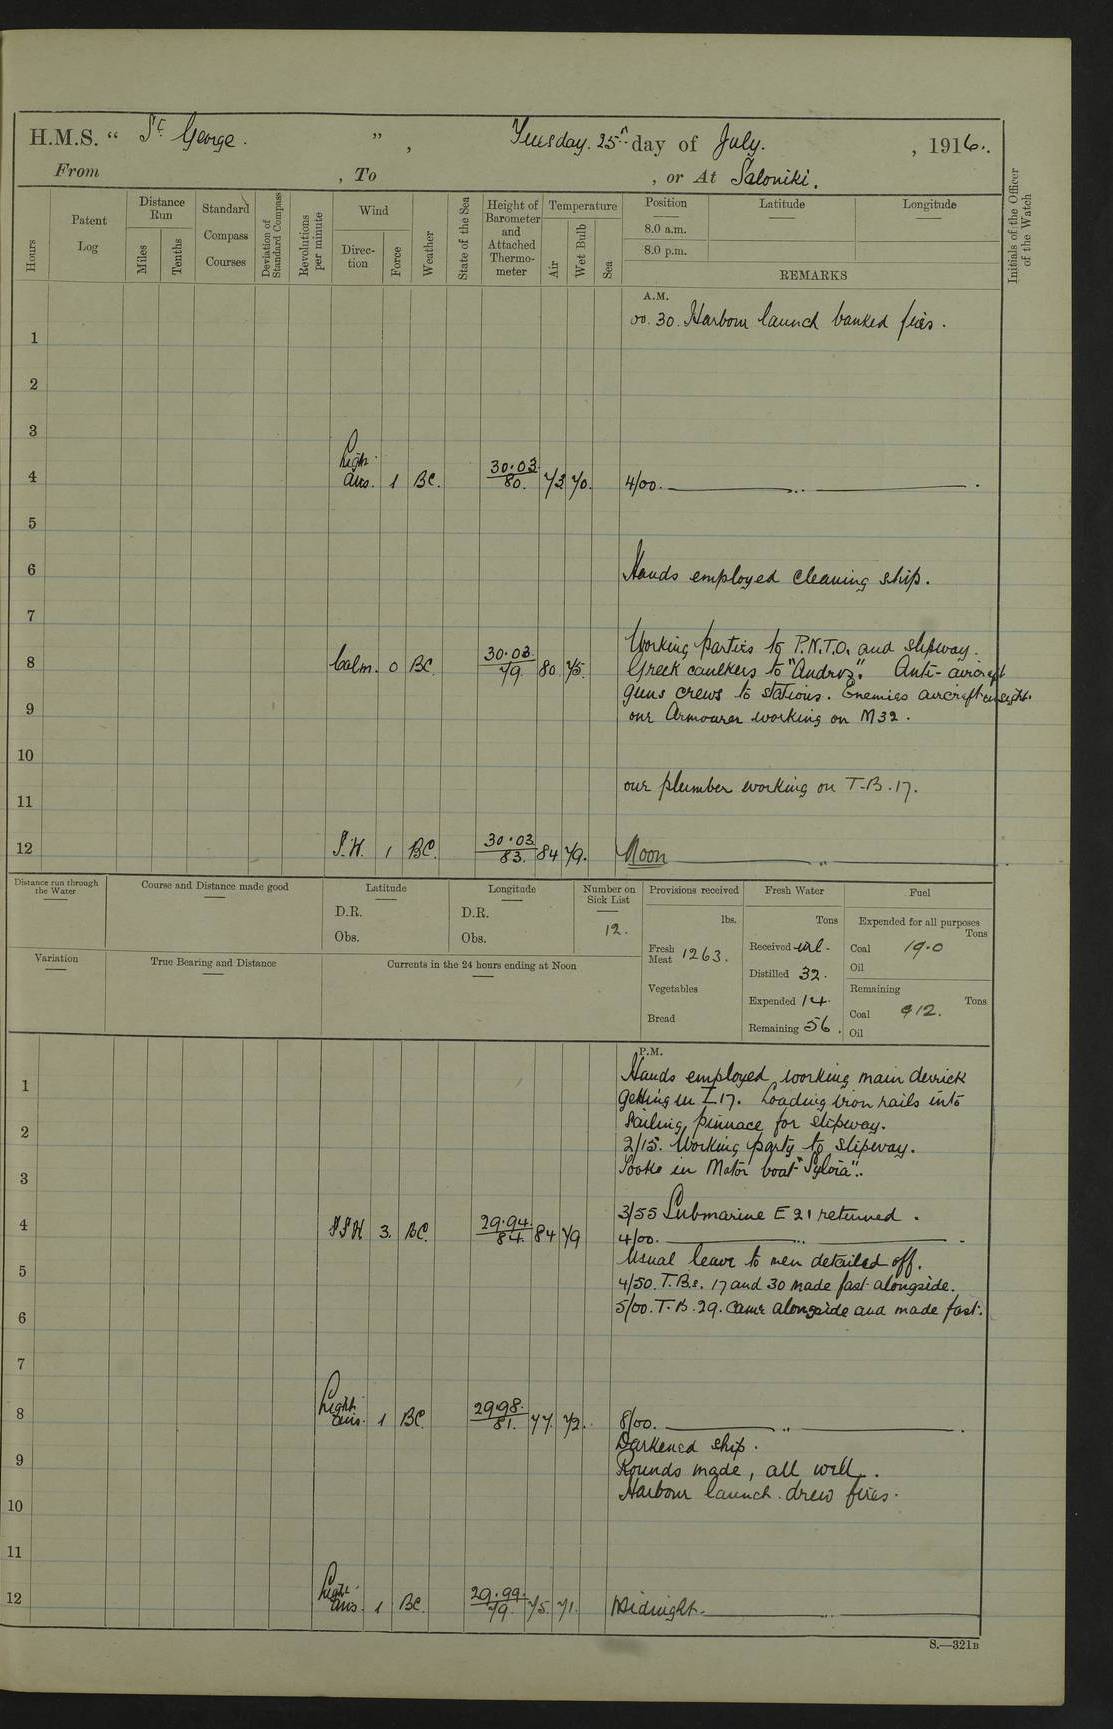 H.M.S. " St George. ", Tuesday. 25th day of July. , 1916.
From , To , or At Saloniki.
Hours
Patent Log
Distance Run
Miles
Tenths
Standard Compass Courses
Deviation of Standard Compass
Revolutions per minute
Wind
Direction
Force
Weather
State of the Sea
Height of Barometer and Attached Thermometer
Temperature
Air
Wet Bulb
Sea
Position
8.0 a.m.
8.0 p.m.
Latitude
Longitude
REMARKS
Initials of the Officer of the Watch
A.M.
00.30. Harbour launch banked fires.
1
2
3
4 Light airs. 1 BC. 30.03. 80. 73 70. 4/00. ——— " ———.
5
6 Hands employed cleaning ship.
7
Working parties to P.N.T.O. and slipway.
8 Calm. 0 BC 30.03. 79. 80 75. Greek caulkers to "Andros". Anti-aircraft
guns crews to stations. Enemies aircraft in sight.
9 our Armourer working on M32.
10
our plumber working on T.B. 17.
11
12 S.W. 1 BC. 30.03 83. 84 79. Noon ——— " ———
Distance run through the Water
Course and Distance made good
Latitude
D.R.
Obs.
Longitude
D.R.
Obs.
Number on Sick List
12.
Provisions received
lbs.
Fresh Meat 1263.
Vegetables
Bread
Fresh Water
Tons
Received nil.
Distilled 32.
Expended 14.
Remaining 56.
Fuel
Expended for all purposes
Tons
Coal 19.0
Oil
Remaining
Tons
Coal 912.
Oil
Variation
True Bearing and Distance
Currents in the 24 hours ending at Noon
P.M.
Hands employed working main derrick
1
getting in I 17. Loading iron rails into
sailing pinnace for slipway.
2 2/15. Working party to slipway.
Took in Motor boat "Sylvia".
3
3/55 Submarine E 21 returned.
4 SSW 3. BC. 29.94. 84. 84 79 4/00. ——— " ———.
Usual leave to men detailed off.
5 4/50. T.Bs. 17 and 30 made fast alongside.
5/00. T.B. 29. came alongside and made fast.
6
7
8 Light airs. 1 BC. 29.98. 81. 77. 72. 8/00. ——— " ———.
Darkened ship.
9 Rounds made, all well.
Harbour launch drew fires.
10
11
12 Light airs. 1 BC. 29.99. 79. 75. 71. Midnight. ——— " ———
S.—321B